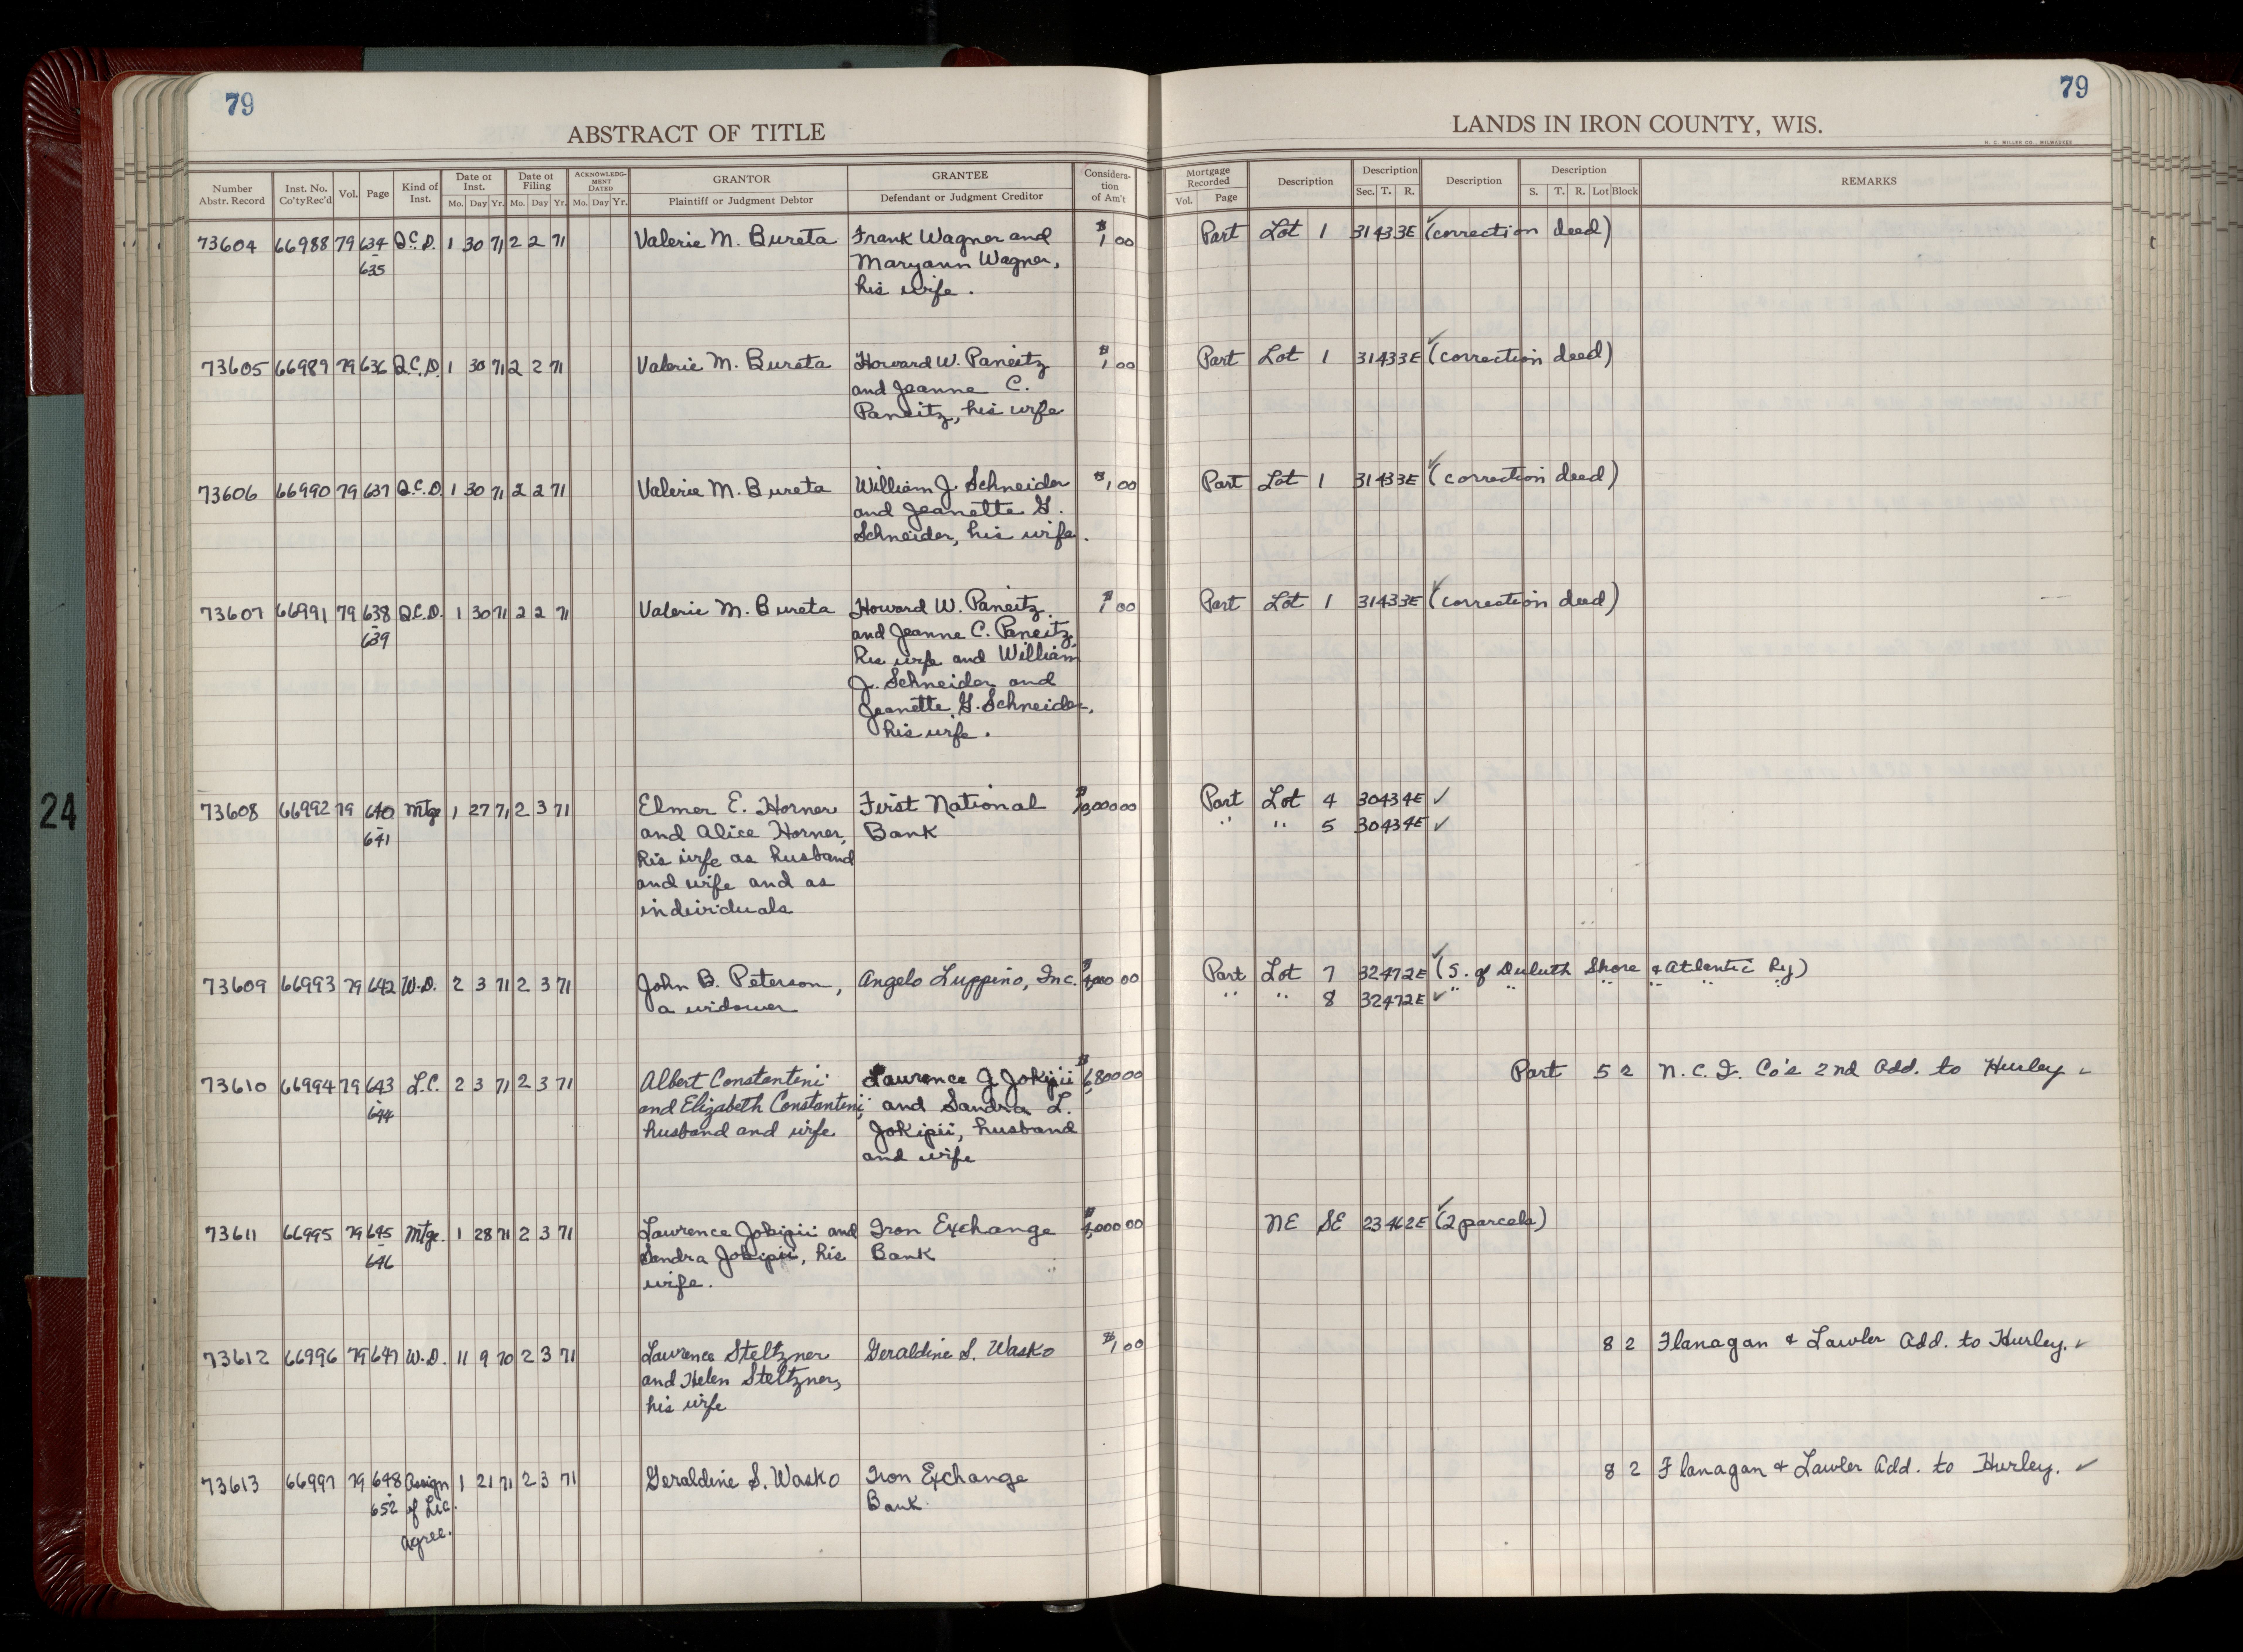 79
79
ABSTRACT OF TITLE
LANDS IN IRON COUNTY, WIS.
H. C. MILLER CO., MILWAUKEE
Number Abstr. Record | Inst. No. Co'tyRec'd | Vol. | Page | Kind of Inst. | Date of Inst. Mo. Day Yr. | Date of Filing Mo. Day Yr. | ACKNOWLEDGMENT DATED Mo. Day Yr. | GRANTOR Plaintiff or Judgment Debtor | GRANTEE Defendant or Judgment Creditor | Consideration of Am't | Mortgage Recorded Vol. Page | Description | Description Sec. T. R. | Description | Description S. T. R. Lot Block | REMARKS
73604 66988 79 634 Q.C.D. 1 30 71 2 2 71 Valerie M. Bureta Frank Wagner and $1 00 Part Lot 1 31 43 3E ✓ (correction deed)
- 635 Maryann Wagner,
his wife.
73605 66989 79 636 Q.C.D. 1 30 71 2 2 71 Valerie M. Bureta Howard W. Paneitz $1 00 Part Lot 1 31 43 3E ✓ (correction deed)
and Jeanne C.
Paneitz, his wife
73606 66990 79 637 Q.C.D. 1 30 71 2 2 71 Valerie M. Bureta William J. Schneider $1 00 Part Lot 1 31 43 3E ✓ (correction deed)
and Jeanette G.
Schneider, his wife.
73607 66991 79 638 Q.C.D. 1 30 71 2 2 71 Valerie M. Bureta Howard W. Paneitz $1 00 Part Lot 1 31 43 3E ✓ (correction deed)
- 639 and Jeanne C. Paneitz,
his wife and William
J. Schneider and
Jeanette G. Schneider,
his wife.
73608 66992 79 640 Mtge 1 27 71 2 3 71 Elmer E. Horner First National 00 Part Lot 4 30 43 4E ✓
- 641 and Alice Horner, Bank " " 5 30 43 4E ✓
his wife as husband
and wife and as
individuals
73609 66993 79 642 W.D. 2 3 71 2 3 71 John B. Peterson, Angelo Luppino, Inc. 00 Part Lot 7 32 47 2E ✓ (S. of Duluth Shore & Atlantic Ry)
a widower " " 8 32 47 2E ✓ " " " " " "
73610 66994 79 643 L.C. 2 3 71 2 3 71 Albert Constantini Lawrence J. Jokipii $6,800 00 Part 5 2 N. C. I. Co's 2nd Add. to Hurley ✓
- 644 and Elizabeth Constantini, and Sandra L.
husband and wife Jokipii, husband
and wife
73611 66995 79 645 Mtge. 1 28 71 2 3 71 Lawrence Jokipii and Iron Exchange 00 NE SE 23 46 2E ✓ (2 parcels)
- 646 Sandra Jokipii, his Bank
wife.
73612 66996 79 647 W.D. 11 9 70 2 3 71 Lawrence Steltzner Geraldine S. Wasko $1 00 8 2 Flanagan & Lawler Add. to Hurley. ✓
and Helen Steltzner,
his wife
73613 66997 79 648 Assign 1 21 71 2 3 71 Geraldine S. Wasko Iron Exchange 8 2 Flanagan & Lawler Add. to Hurley. ✓
- 652 of Lic. Bank
Agree.
24